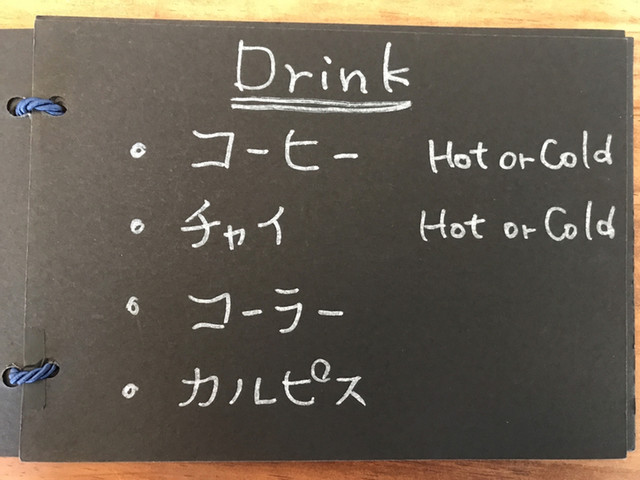 Drink
• コーヒー Hot or Cold
• チャイ Hot or Cold
• コーラー
• カルピス